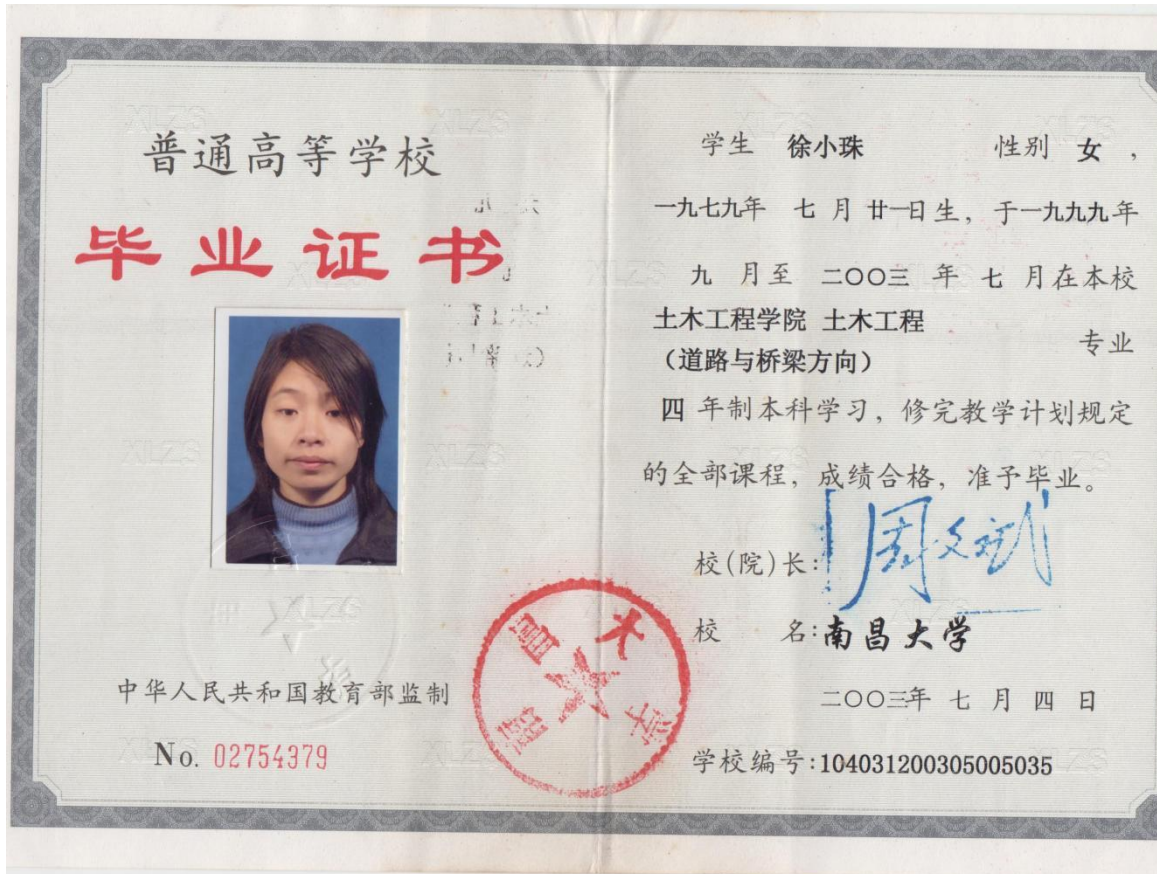 普通高等学校
毕业证书
中华人民共和国教育部监制
No. 02754379
学生 徐小珠 性别 女，
一九七九年 七 月 廿一日生，于一九九九年
九 月至 二〇〇三 年 七 月在本校
土木工程学院 土木工程
（道路与桥梁方向） 专业
四 年制本科学习，修完教学计划规定
的全部课程，成绩合格，准予毕业。
校(院)长: 周文斌
校 名:南昌大学
二〇〇三年 七 月 四 日
学校编号:104031200305005035
南昌大学
XLZS